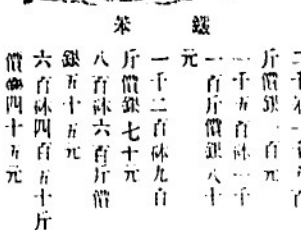 斤價銀一百元
一千五百砵一千
一百斤價銀八十
元
一千二百砵九百
斤價銀七十元
八百砵六百斤價
銀五十五元
六百砵四百五十斤
價銀四十五元